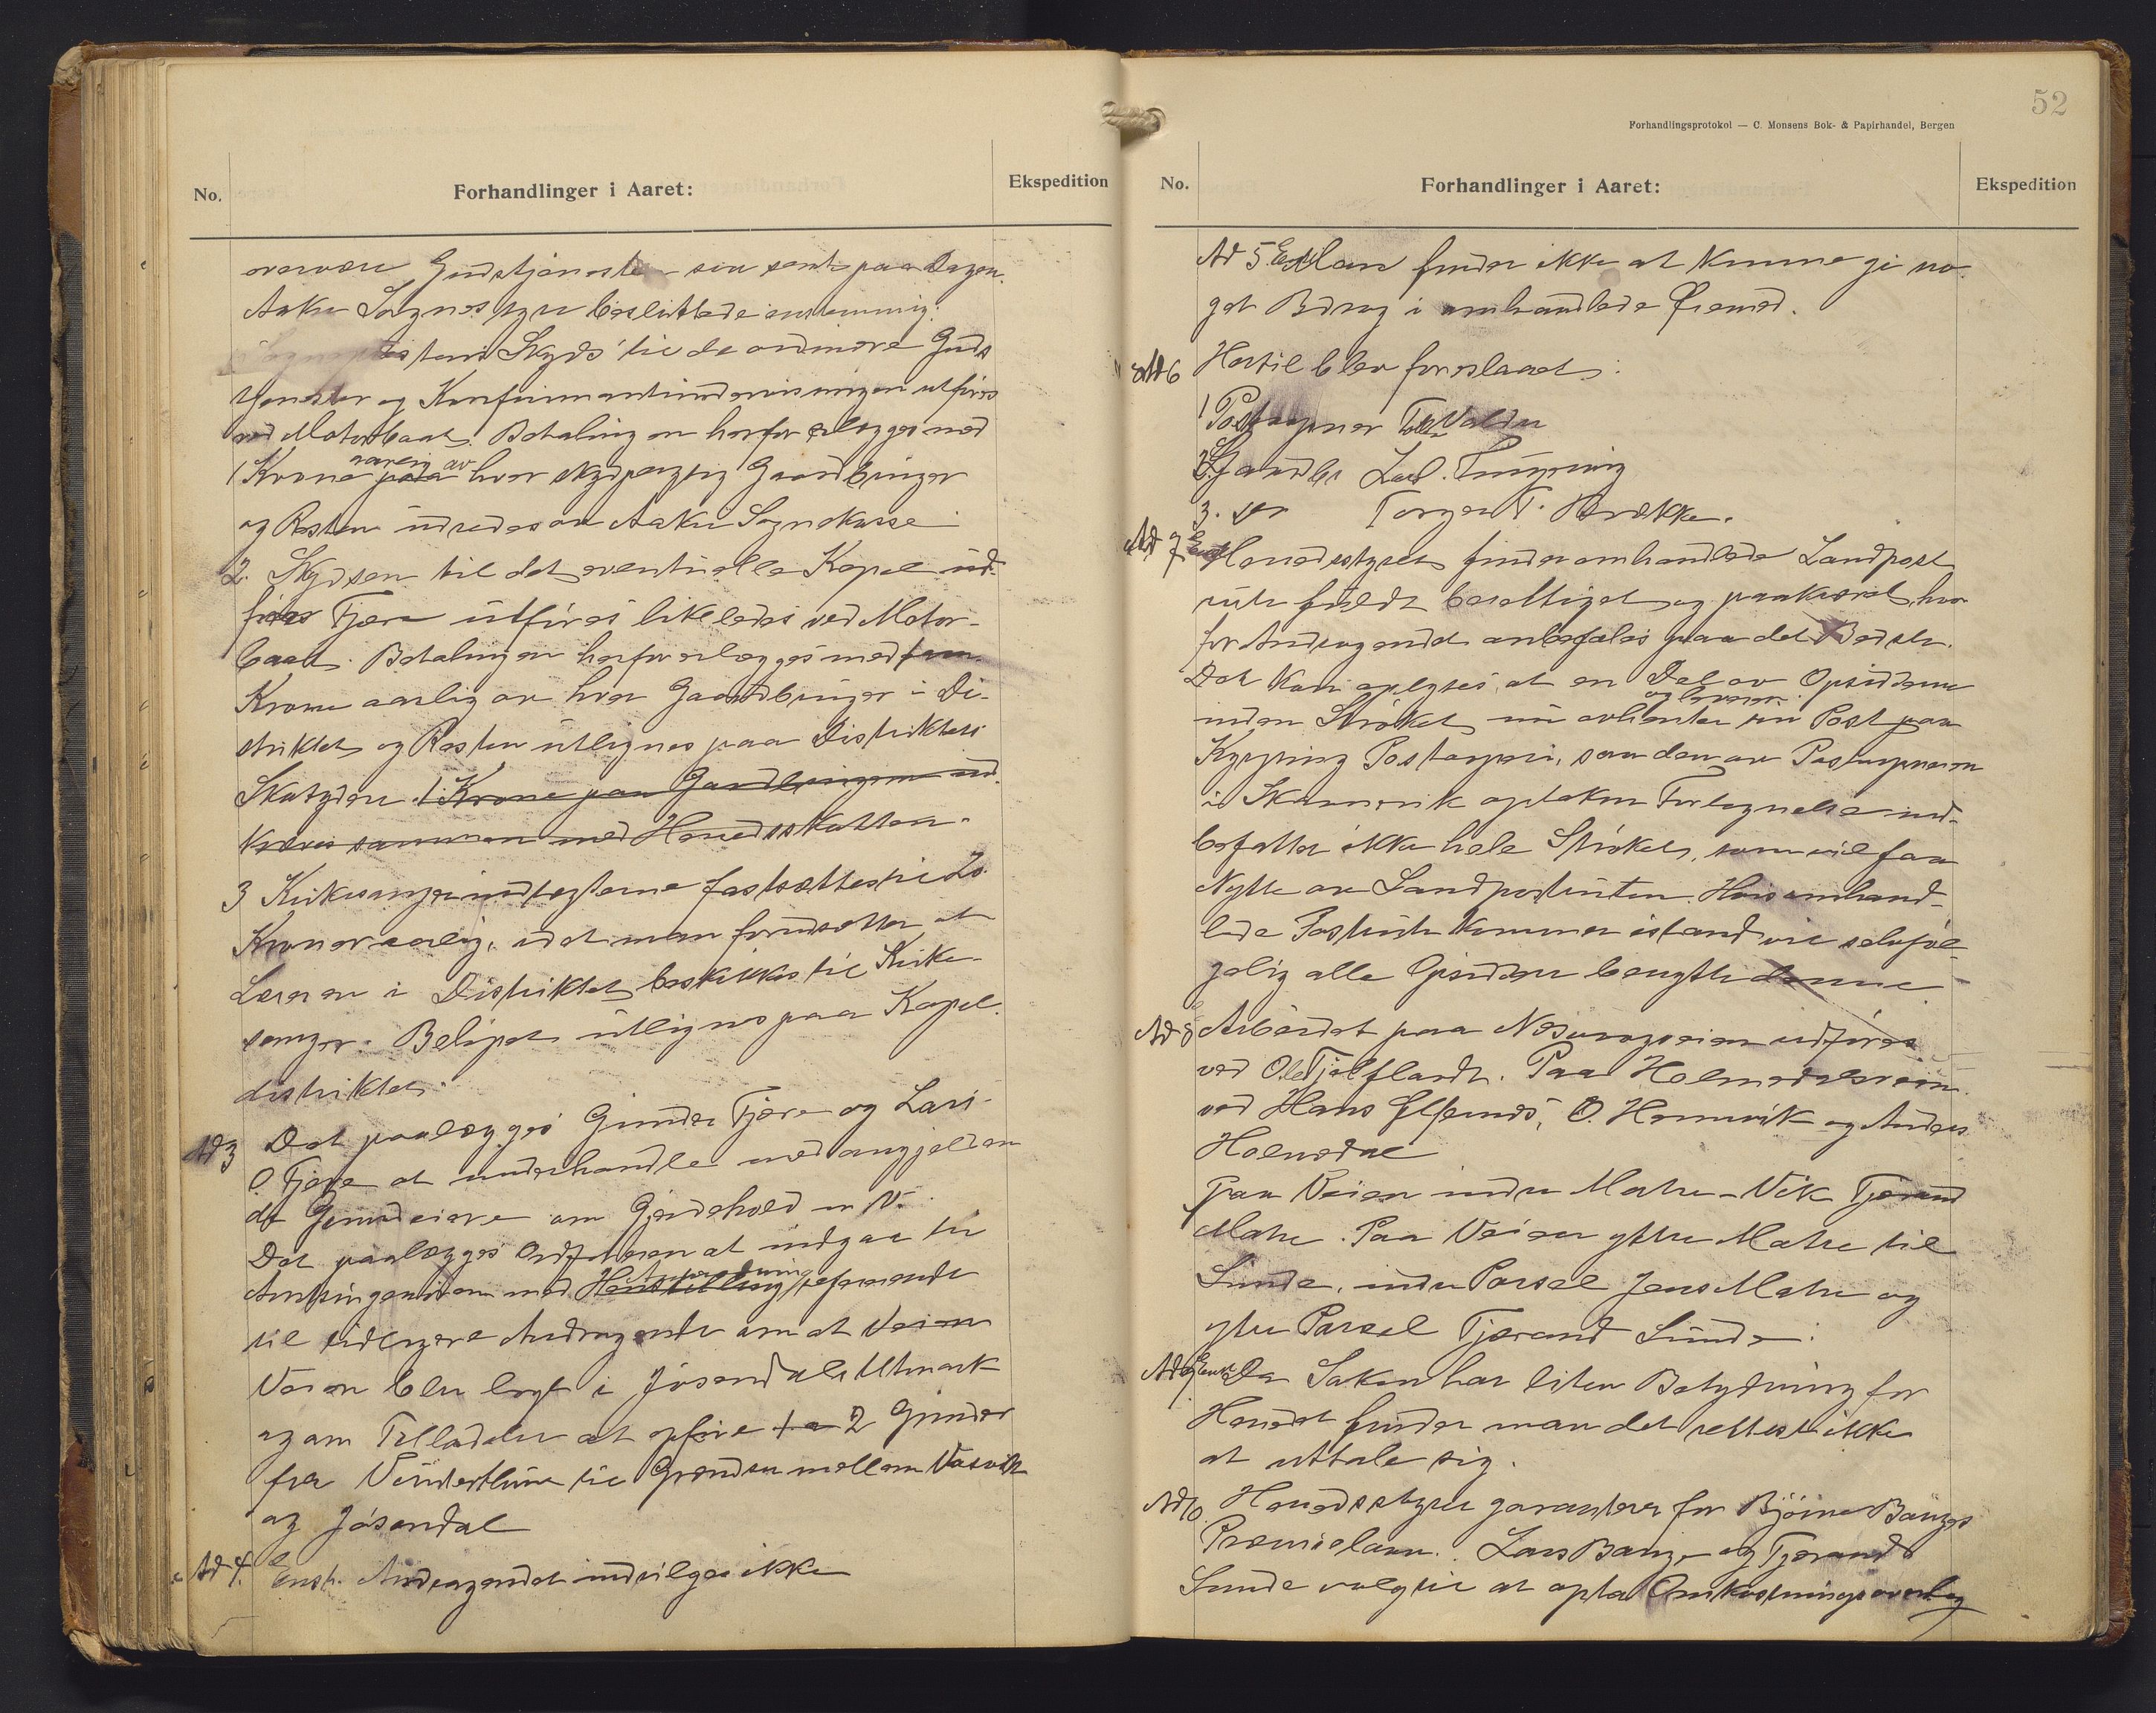 No.
Forhandlinger i Aaret:
Ekspedition
overvære Gudstjeneste - saa sent paa Dagen.
Aakre Sognestyre besluttede enstemmig:
Skyds til de ordinære Guds
tjenester og Konfirmantundervisningen utføres
ved Motorbaat. Betalingen herfor erlægges med
1 Krone aarlig av hver skydspligtig Gaardbruger
og Resten udredes av Aakre Sognekasse.
2. Skydsen til det eventuelle Kapel ind-
føres Fjære utføres likeledes ved Motor-
baat. Betalingen herfor erlægges med fem
Krone aarlig av hver Gaardbruger i Di-
striktet og Resten utlignes paa Distriktets
Skatydere. 1 Krone paa Gardbrugerne ind-
kræves sammen med Heredsskatten.
3 Kirkesangerindtegterne fastsættes til 20
Kroner aarlig, idet man forudsætter at
Læreren i Distriktet beskikkes til Kirke-
sanger. Beløpet utlignes paa Kapel-
distriktet.
Ad 3 Det paalægges Gunder Fjære og Lars
O. Fjære at underhandle med angjelden
de Grundeiere om Gjerdehold m V.
Det paalægges Ordføreren at indgaa til
Amtsingeniøren med Henstilling Anmodning refererende
til tidligere Andragende om at Veien
Veien blir lagt i Jøsendals Utmark
og om Tilladelse at opføre 1 a 2 Grinder
fra til Grændsen mellem Vasvik
og Jøsendal
Ad 4. Enst. Andragendet indvilges ikke
52
Forhandlingsprotokol — C. Monsens Bok- & Papirhandel, Bergen
No.
Forhandlinger i Aaret:
Ekspedition
Ad 5 Enst Man finder ikke at kunne gi no-
get Bidrag i omhandlede Øiemed.
Ad 6 Hertil blev foreslaaet:
1 Postaapner Valdre
2. Gaardbr Lad. Tungesvig
3. do Torger T. Brække.
Ad 7 Enst Heredsstyret finder omhandlede Landpost
rute fuldt berettiget og paakrævet, hvor
for Andragendet anbefales paa det Bedste.
Det kan oplyses, at en Del av Opsidderne
inden Strøket nu avhenter og leverer sin Post paa
Kyrping Postaapneri, saa den av Postaapneren
i Skaanevik optakne Fortegnelse ind-
befatter ikke hele Strøket, som vil faa
Nytte av Landpostruten. Hvis omhand-
lede Postrute kommer istand vil selvføl-
gelig alle Opsiddere benytte denne
Ad 8 Arbeidet paa Næsvaagveien utføres
ved Ole Tjelflaadt. Paa Holmedalsveien
ved Hans Elfsund, O. Hamrvik og Anders
Holmedal
Paa Veien indre Matre - Vik Tjerand
Matre. Paa Veien yttre Matre til
Sunde, indre Parsel Jens Matre og
ytre Parsel Tjerand Sunde.
Ad 9 Enst. Da Saken har liten Betydning for
Heredet finder man det rettest ikke
at uttale sig.
Ad 10. Heredsstyre garanterer for Bjørne Bauges
Premielaan. Lars Bauge og Tjerand
Sunde valg til at opta Omkostningsoverlag